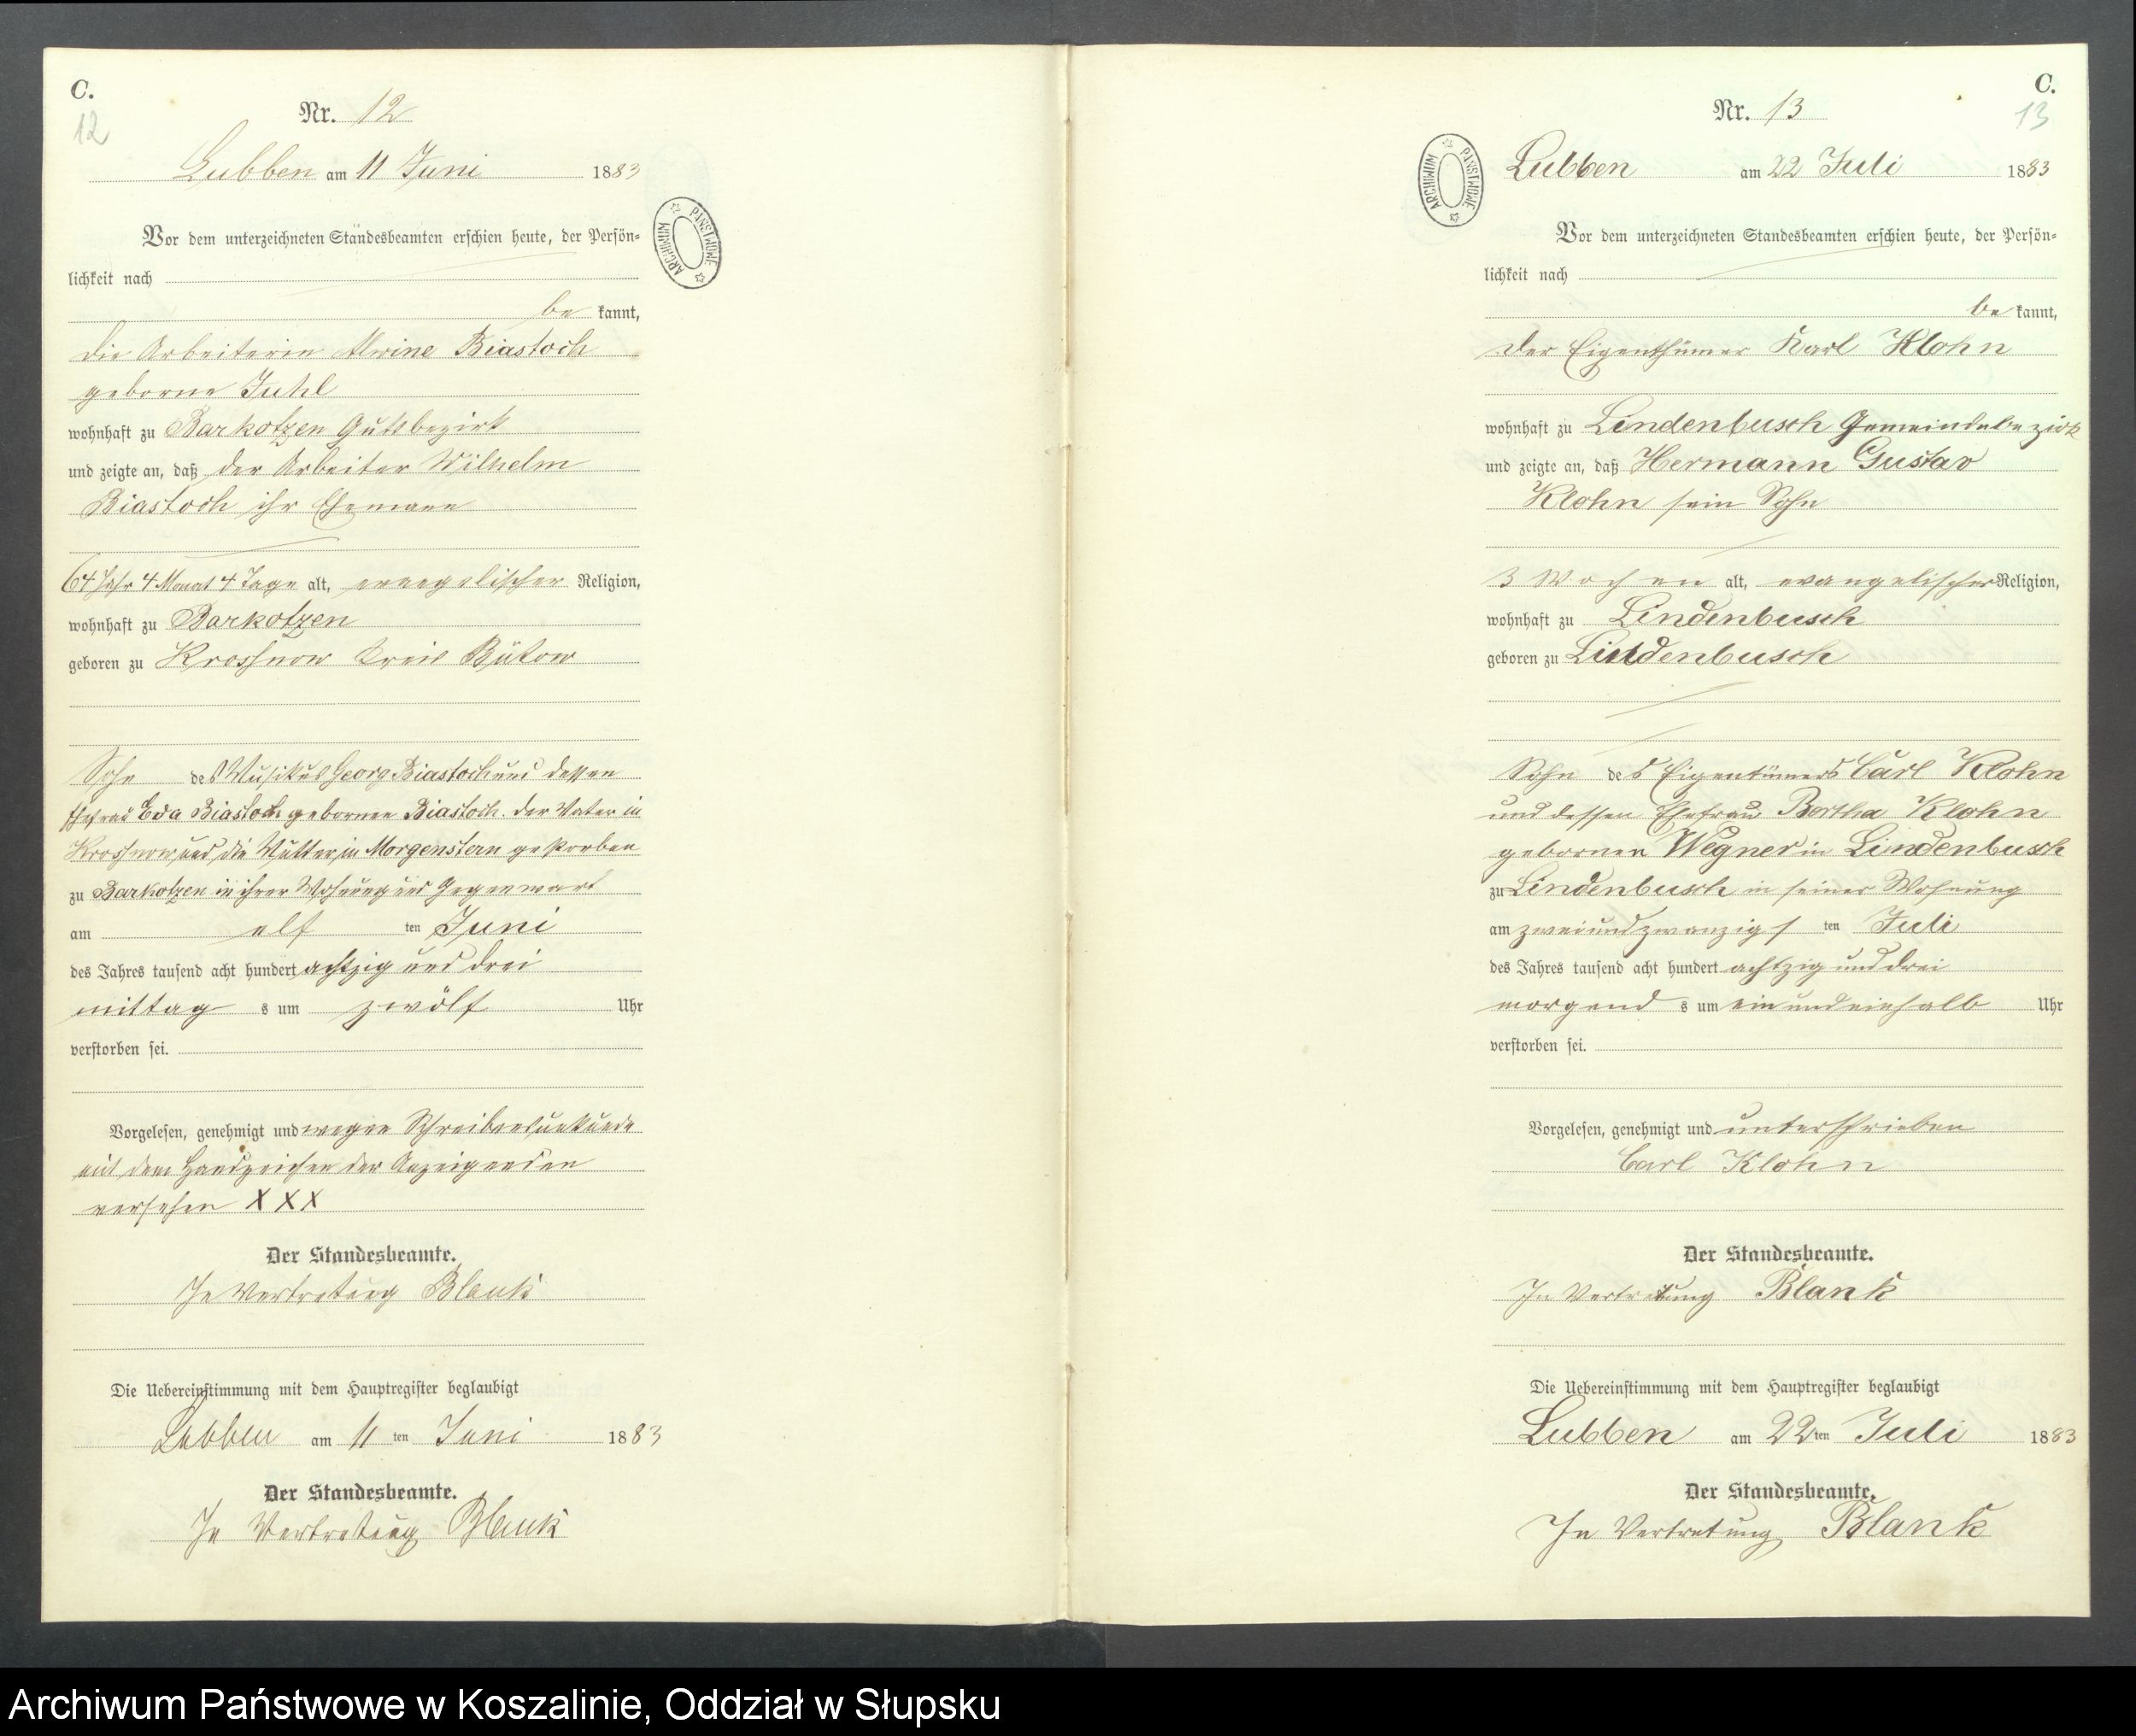 C.
12
Nr. 12
Lubben am 11 Juni 1883
Vor dem unterzeichneten Standesbeamten erschien heute, der Persön-
lichkeit nach
be kannt,
die Arbeiterin Alwine Biastoch
geborne Juhl
wohnhaft zu Barkotzen Gutsbezirk
und zeigte an, daß der Arbeiter Wilhelm
Biastoch ihr Ehemann
64 Jahr 4 Monat 4 Tage alt, evangelischer Religion,
wohnhaft zu Barkotzen
geboren zu Krossnow Kreis Bütow
Sohn des Musikus Georg Biastoch und dessen
Ehefrau Eva Biastoch gebornen Biastoch. der Vater in
Krossnow und die Mutter in Morgenstern gestorben
zu Barkotzen in ihrer Wohnung und Gegenwart
am elf ten Juni
des Jahres tausend acht hundert achtzig und drei
mittag s um zwölf Uhr
verstorben sei.
Vorgelesen, genehmigt und wegen Schreibensunkunde
mit dem Handzeichen der Anzeigenden
versehen XXX
Der Standesbeamte.
In Vertretung Blank
Die Uebereinstimmung mit dem Hauptregister beglaubigt
Lubben am 11 ten Juni 1883
Der Standesbeamte.
In Vertretung Blank
ARCHIWUM PAŃSTWOWE
C.
13
Nr. 13
Lubben am 22 Juli 1883
Vor dem unterzeichneten Standesbeamten erschien heute, der Persön-
lichkeit nach
be kannt,
der Eigenthümer Karl Klohn
wohnhaft zu Lindenbusch Gemeindebezirk
und zeigte an, daß Hermann Gustav
Klohn sein Sohn
3 Wochen alt, evangelischer Religion,
wohnhaft zu Lindenbusch
geboren zu Lindenbusch
Sohn des Eigentümers Carl Klohn
und dessen Ehefrau Bertha Klohn
gebornen Wegner in Lindenbusch
zu Lindenbusch in seiner Wohnung
am zweiundzwanzigs ten Juli
des Jahres tausend acht hundert achtzig und drei
morgend s um ein und einhalb Uhr
verstorben sei.
Vorgelesen, genehmigt und unterschrieben
Carl Klohn
Der Standesbeamte.
In Vertretung Blank
Die Uebereinstimmung mit dem Hauptregister beglaubigt
Lubben am 22 ten Juli 1883
Der Standesbeamte.
In Vertretung Blank
ARCHIWUM PAŃSTWOWE
Archiwum Państwowe w Koszalinie, Oddział w Słupsku